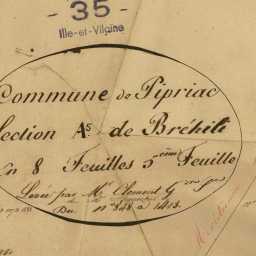 - 35 -
Ille-et-Vilaine
Commune de Pipriac
Section As de Bréhili
En 8 Feuilles 5ème Feuille
Levée par Mr Clement Gme
Du no 848 a 1413.